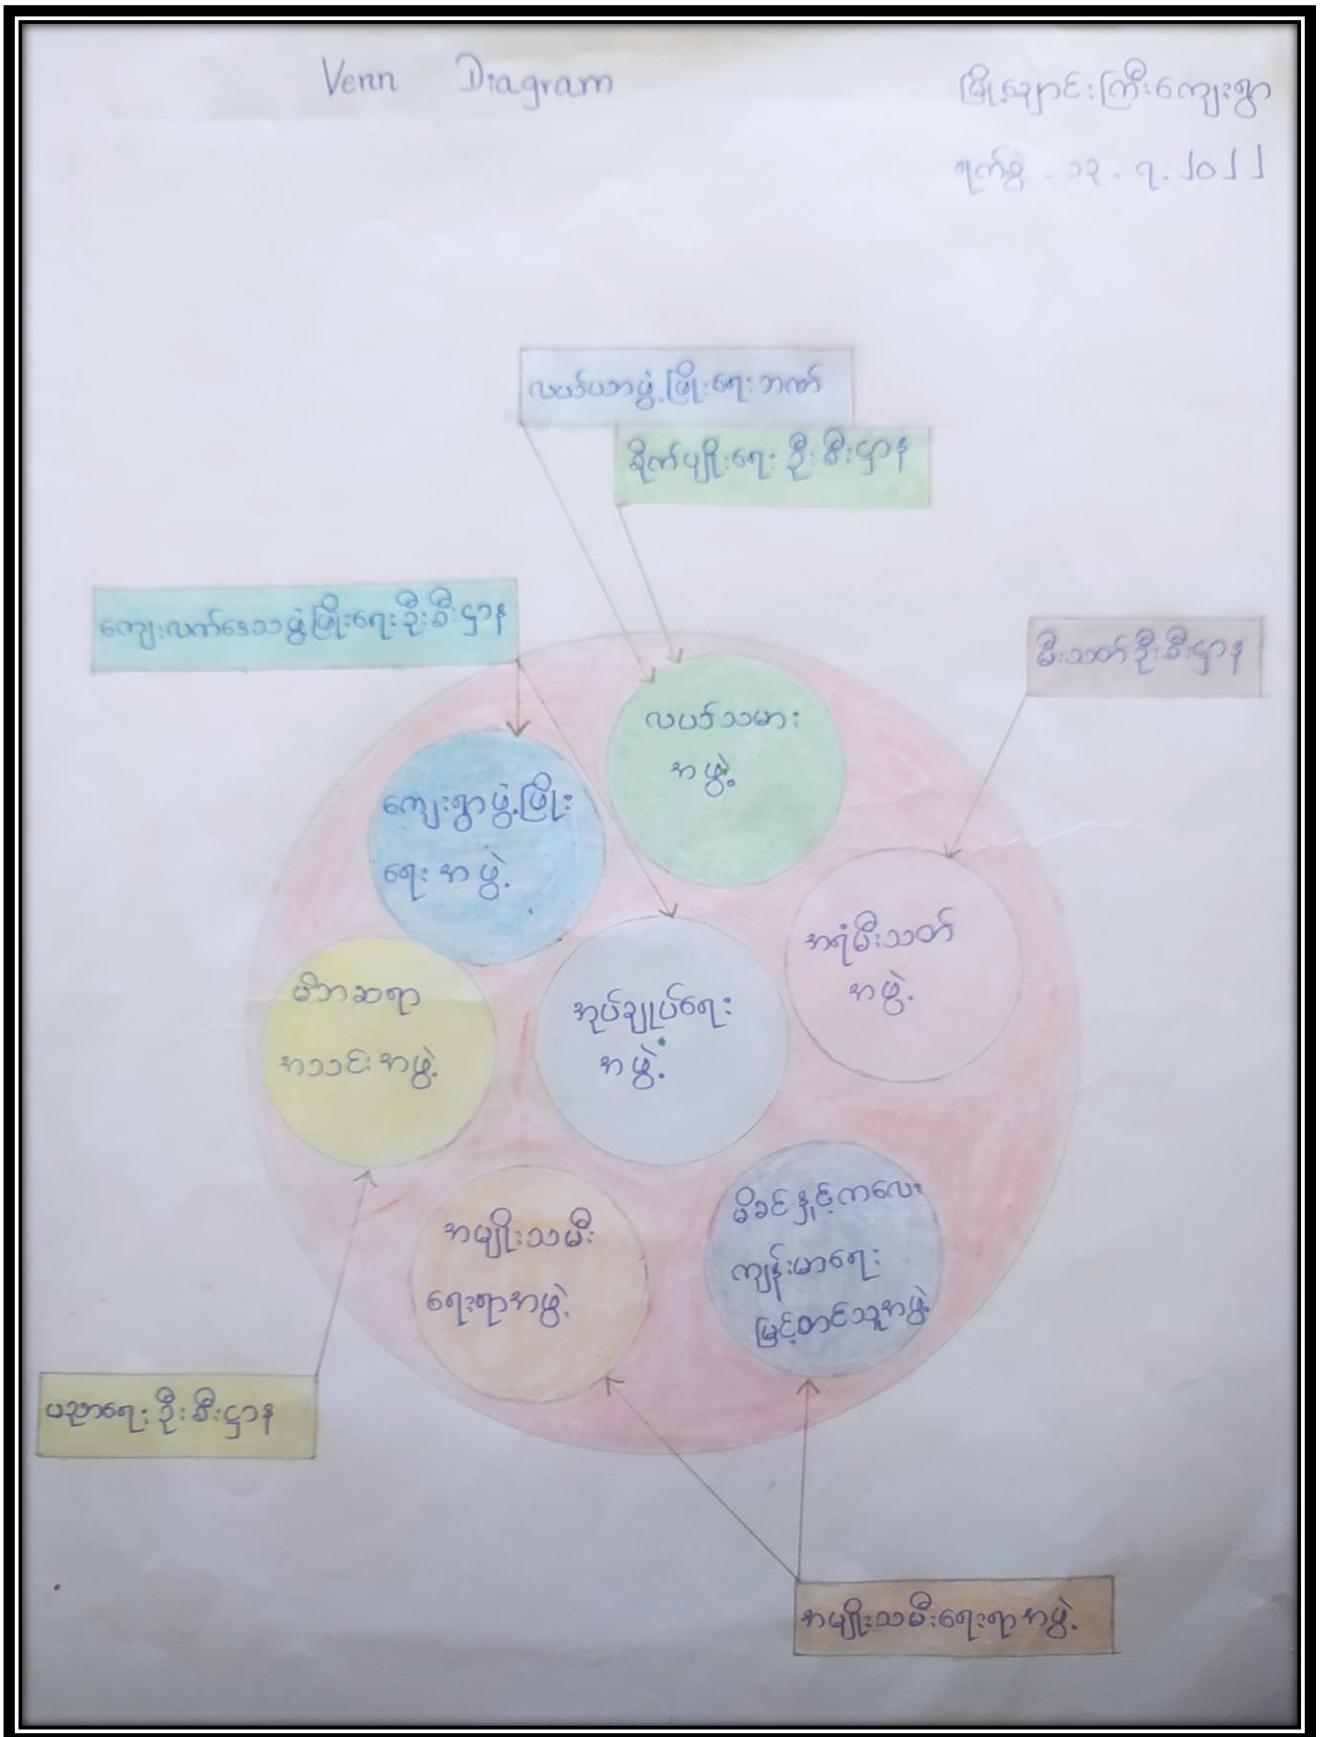 Venn Diagram
မြို့ချောင်းကြီးကျေးရွာ
ရက်စွဲ . ၁၃ . ၇ . ၂၀၂၂
လယ်ယာဖွံ့ဖြိုးရေးဘဏ်
စိုက်ပျိုးရေးဦးစီးဌာန
ကျေးလက်ဒေသဖွံ့ဖြိုးရေးဦးစီးဌာန
မီးသတ်ဦးစီးဌာန
လယ်သမား
အဖွဲ့
ကျေးရွာဖွံ့ဖြိုး
ရေးအဖွဲ့
အရံမီးသတ်
အဖွဲ့
မိဘဆရာ
အသင်းအဖွဲ့
အုပ်ချုပ်ရေး
အဖွဲ့
မိခင်နှင့်ကလေး
ကျန်းမာရေး
မြှင့်တင်သူအဖွဲ့
အမျိုးသမီး
ရေးရာအဖွဲ့
ပညာရေးဦးစီးဌာန
အမျိုးသမီးရေးရာအဖွဲ့